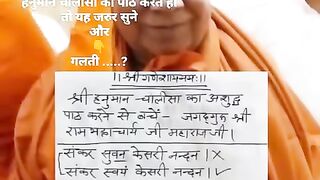 हनुमान चालीसा का पाठ करते हो
तो यह जरुर सुने
और
गलती .....?
।।श्रीगणेशायनमः।।
श्री हनुमान-चालीसा का अशुद्ध
पाठ करने से बचें- जगद्गुरु श्री
रामभद्राचार्य जी महाराजजी।
संकर सुवन केसरी नन्दन।X
संकर स्वयं केसरी नन्दन।✓